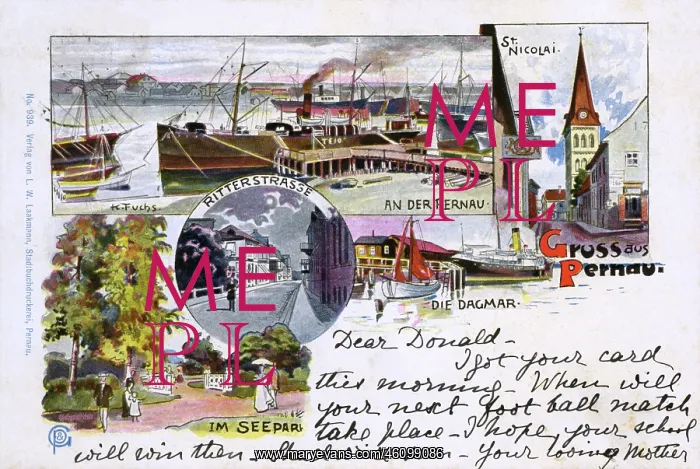 St. NICOLAI.
No. 939. Verlag von L. W. Laakmann, Stadtbuchdruckerei, Pernau.
K. Fuchs.
AN DER PERNAU.
RITTERSTRASSE
Gruss aus
Pernau.
DIE DAGMAR.
IM SEEPARK
ME
PL
ME
PL
Dear Donald -
I got your card
this morning - When will
your next foot ball match
take place - I hope, your school
will win then - Your loving Mother
www.maryevans.com/46099086